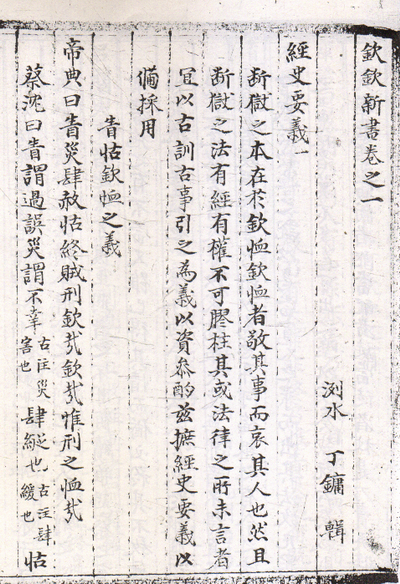 欽欽新書卷之一
洌水 丁鏞 輯
經史要義一
断獄之本在於欽恤欽恤者敬其事而哀其人也然且
断獄之法有經有權不可膠柱其或法律之所未言者
宜以古訓古事引之為義以資叅酌兹摭經史要義以
備採用
眚怙欽恤之義
帝典曰眚災肆赦怙終賊刑欽哉欽哉惟刑之恤哉
蔡沈曰眚謂過誤災謂不幸古註災害也肆縱也古註肆緩也怙